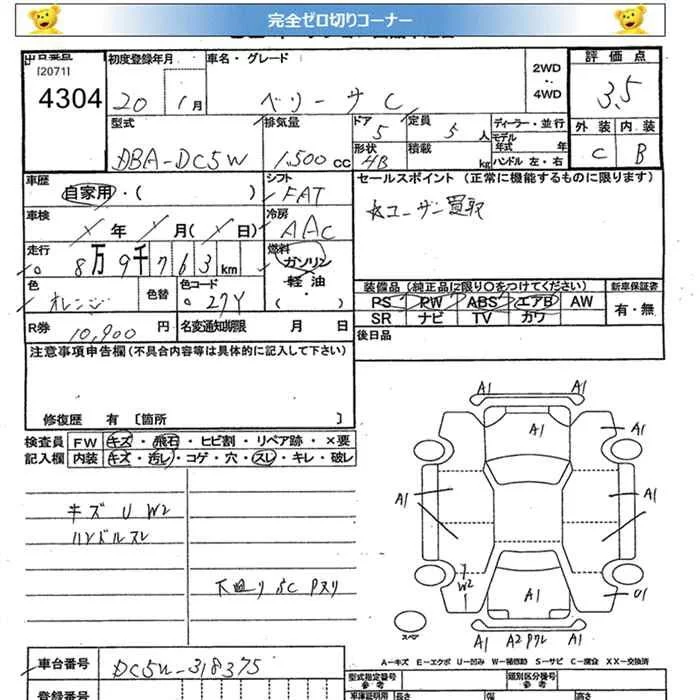 完全ゼロ切りコーナー
[2071]
4304
初度登録年月
20 1月
車名・グレード
ベリーサC
2WD
・・
4WD
評価点
3.5
外装 内装
C B
型式
DBA-DC5W
排気量
1,500cc
ドア
5
形状
HB
定員
5人
積載
kg
ディーラー・並行
モデル年式 年
ハンドル 左・右
車歴
自家用・( )
シフト
FAT
冷房
AAC
車検
年 月( 日)
走行
8万9千763km
燃料
ガソリン
・
軽油
( )
色
オレンジ
色替
色コード
27Y
R券 10,900円
名変通知期限 月 日
セールスポイント(正常に機能するものに限ります)
☆ユーザー買取
装備品(純正品に限り〇をつけてください)
新車保証書
PS PW ABS エアB AW
SR ナビ TV カワ
有・無
後日品
注意事項申告欄(不具合内容等は具体的に記入して下さい)
修復歴 有 [箇所 ]
検査員
記入欄
FW キズ・飛石・ヒビ割・リペア跡・×要
内装 キズ・汚レ・コゲ・穴・スレ・キレ・破レ
キズ U W2
ハンドルスレ
下廻り SC Pヌリ
A1 A1
A1 A1
A1 A1
W2 A1 U1
A1 A2 Pワレ A1
スペア
A－キズ E－エクボ U－凹み W－補修跡 S－サビ C－腐食 XX－交換済
車台番号
DC5W-318375
登録番号
型式指定番号
参考
類別区分番号
参考
車庫証明用 長さ 幅 高さ